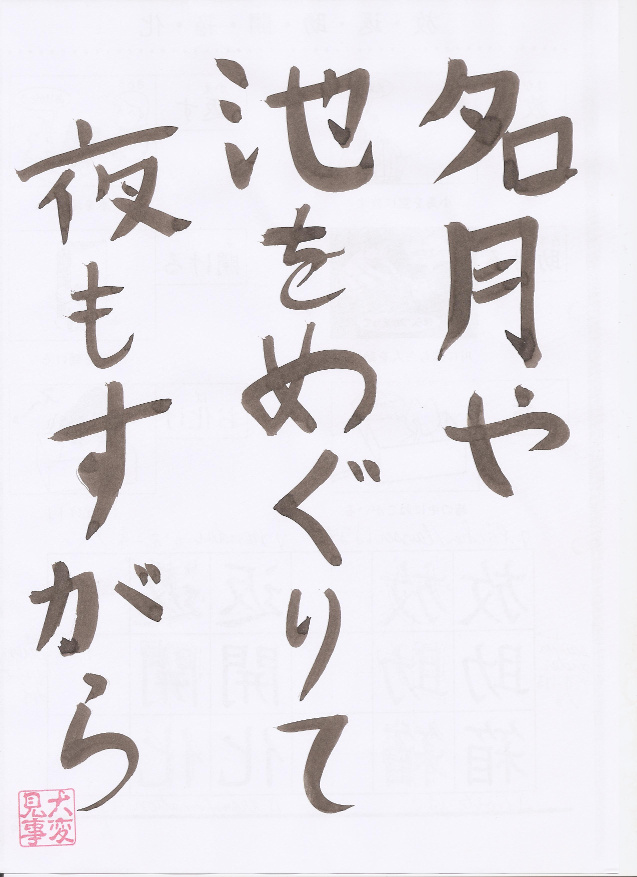 名月や
池をめぐりて
夜もすがら
大変
見事